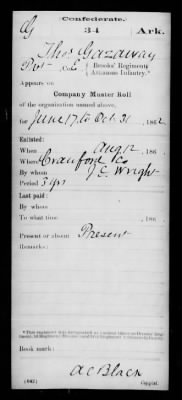 Confederate.
G 34 Ark.
Thos Gazaway
Pvt, Co. G { Brooks' Regiment
Arkansas Infantry.*
Appears on
Company Muster Roll
of the organization named above,
for June 17, to Oct 31, 1862.
Enlisted:
When Aug 12, 186
Where Crawford Co
By whom J C Wright
Period 3 yrs
Last paid:
By whom
To what time , 186 .
Present or absent Present
Remarks:
Book mark:
A C Black
(642) Copyist.